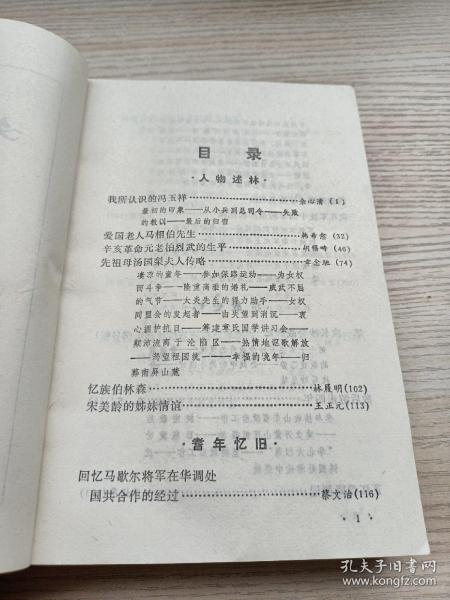 目录
·人物述林·
我所认识的冯玉祥……余心清(1)
最初的印象——从小兵到总司令——失败
的教训——最后的归宿
爱国老人马相伯先生……韩希愈(32)
辛亥革命元老柏烈武的生平……(46)
先祖母汤国梨夫人传略……章念驰(74)
凄凉的童年——参加保路运动——为女权
而斗争——隆重高雅的婚礼——威武不屈
的气节——太炎先生的得力助手——女权
同盟会的发起者——由失望到消沉——衷
心拥护抗日——筹建章氏国学讲习会——
颠沛流离于沦陷区——热情地讴歌解放
——渴望祖国统一——幸福的晚年——归
葬南屏山麓
忆族伯林森……林履明(102)
宋美龄的姊妹情谊……王正元(113)
·耆年忆旧·
回忆马歇尔将军在华调处
国共合作的经过……蔡文治(116)
·1·
孔夫子旧书网
kongfz.com